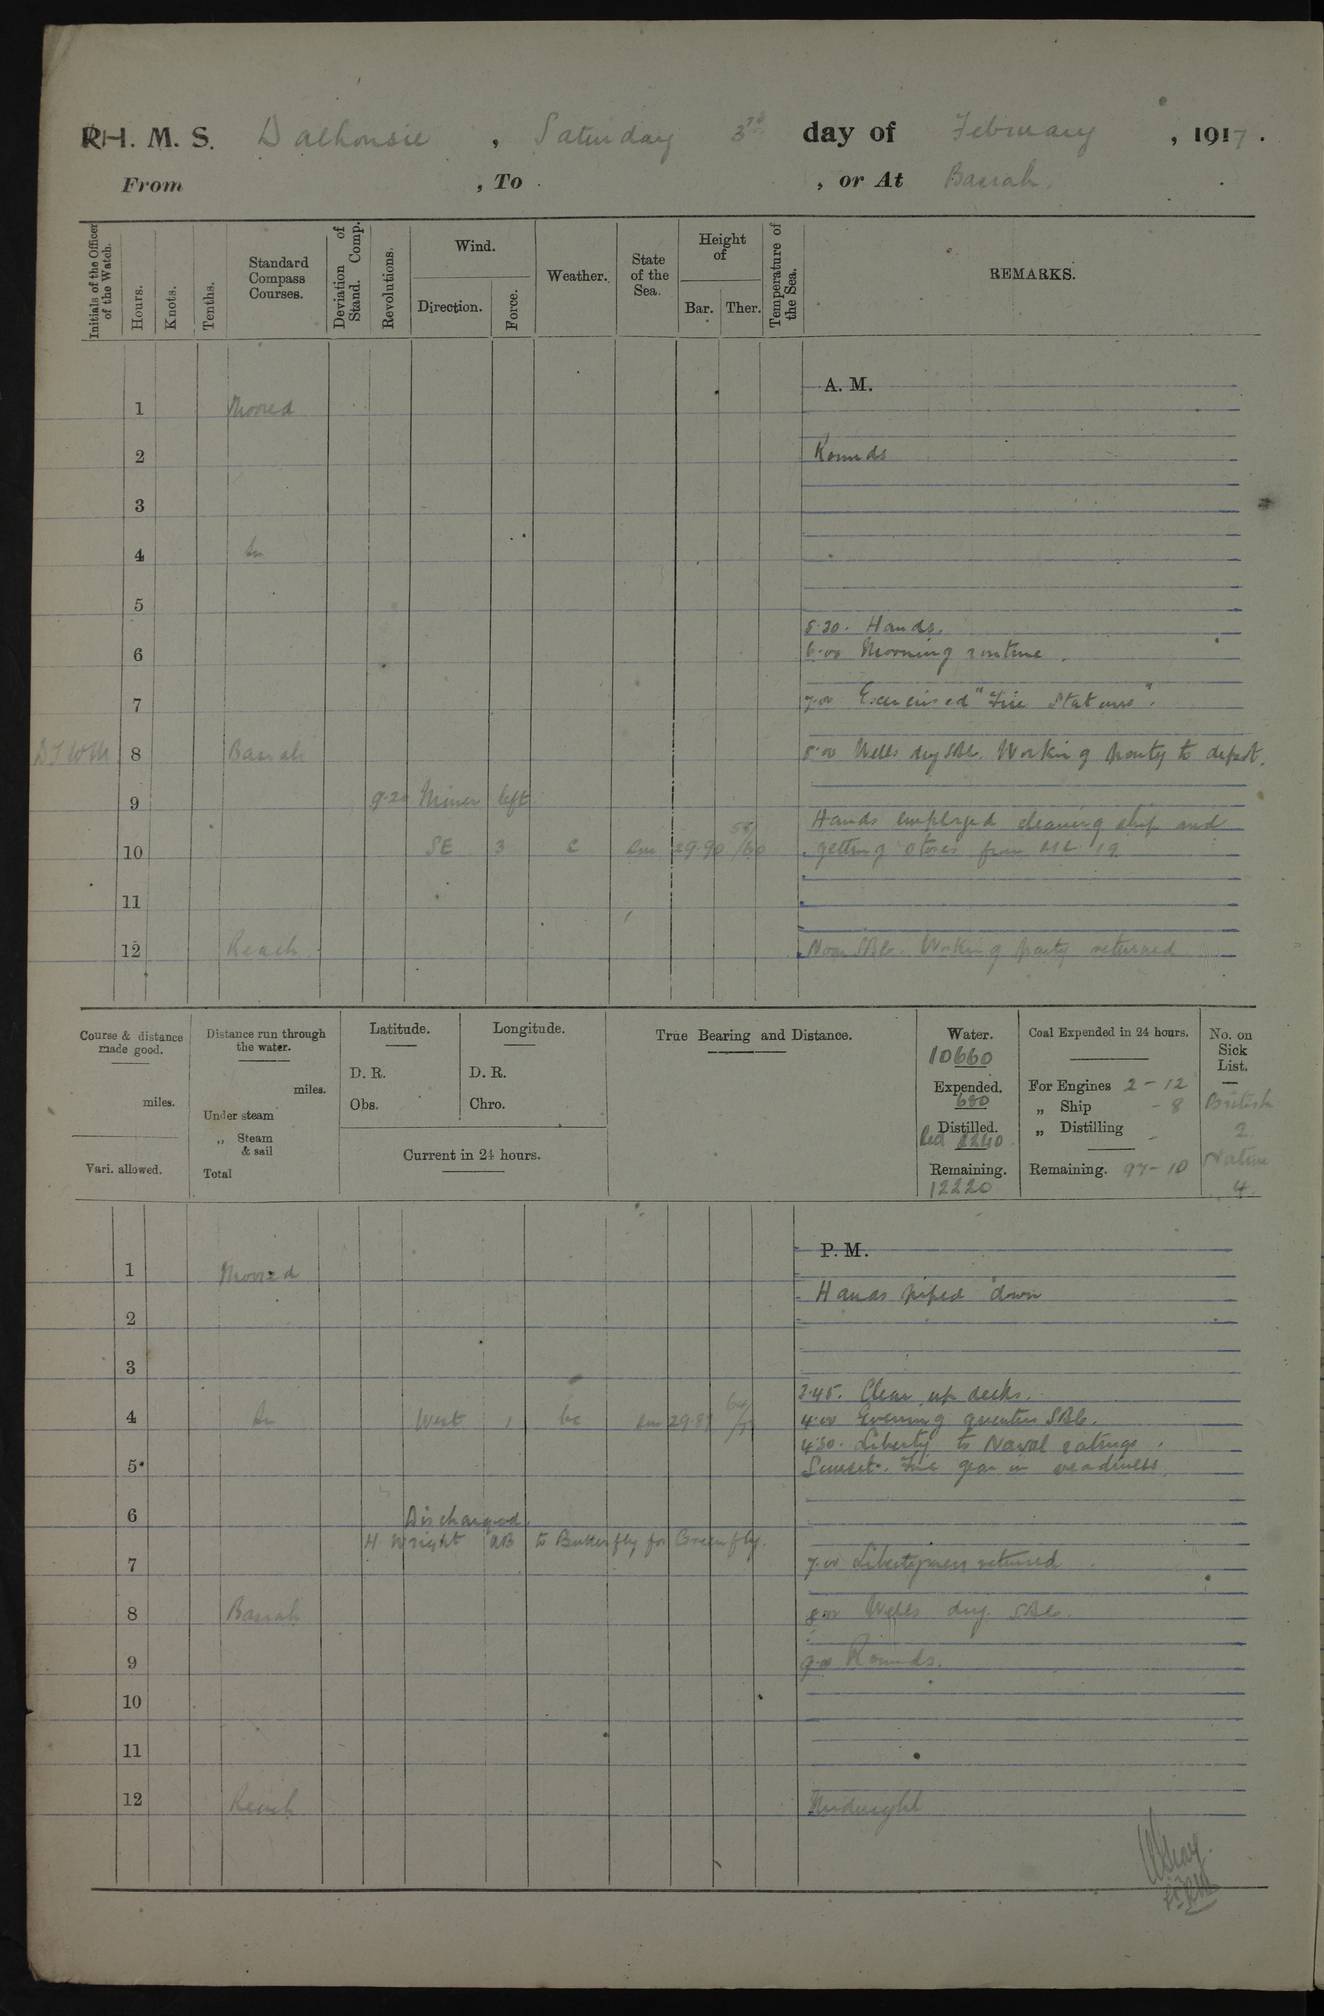 R.H. M. S. Dalhousie , Saturday 3rd day of February , 1917.
From , To , or At Basrah.
Initials of the Officer of the Watch.
Hours.
Knots.
Tenths.
Standard Compass Courses.
Deviation of Stand. Comp.
Revolutions.
Wind.
Direction.
Force.
Weather.
State of the Sea.
Height of
Bar. Ther.
Temperature of the Sea.
REMARKS.
A. M.
1 Moored
2 Rounds
3
4 in
5
5.30. Hands.
6 6.00 Morning routine.
7 7.00 Exercised "Fire Stations".
8 Basrah 8.00 Wells dry SAB. Working party to depot.
9 9.20 Miner left
Hands employed cleaning ship and
10 SE 3 c sm 29.90 58/60 getting stores from
11
12 Reach Noon SAB. Working party returned
Course & distance made good.
miles.
Vari. allowed.
Distance run through the water.
miles.
Under steam
„ Steam & sail
Total
Latitude.
D. R.
Obs.
Longitude.
D. R.
Chro.
Current in 24 hours.
True Bearing and Distance.
Water.
10660
Expended.
680
Distilled.
Recd 2240
Remaining.
12220
Coal Expended in 24 hours.
For Engines 2 - 12
„ Ship - 8
„ Distilling -
Remaining. 97 - 10
No. on Sick List.
British
2
Native
4
P. M.
1 Moored
Hands piped down
2
3
3.45. Clear up decks.
4 in West 1 bc sm 4.00 Evening quarters SAB.
4.30. Liberty to Naval ratings.
5 Sunset. Fire gear in readiness
6 Discharged.
H. Wright AB to Butterfly for Greenfly.
7 7.00 Libertymen returned
8 Basrah 8.00 Wells dry. SAB.
9 9.00 Rounds.
10
11
12 Reach Midnight